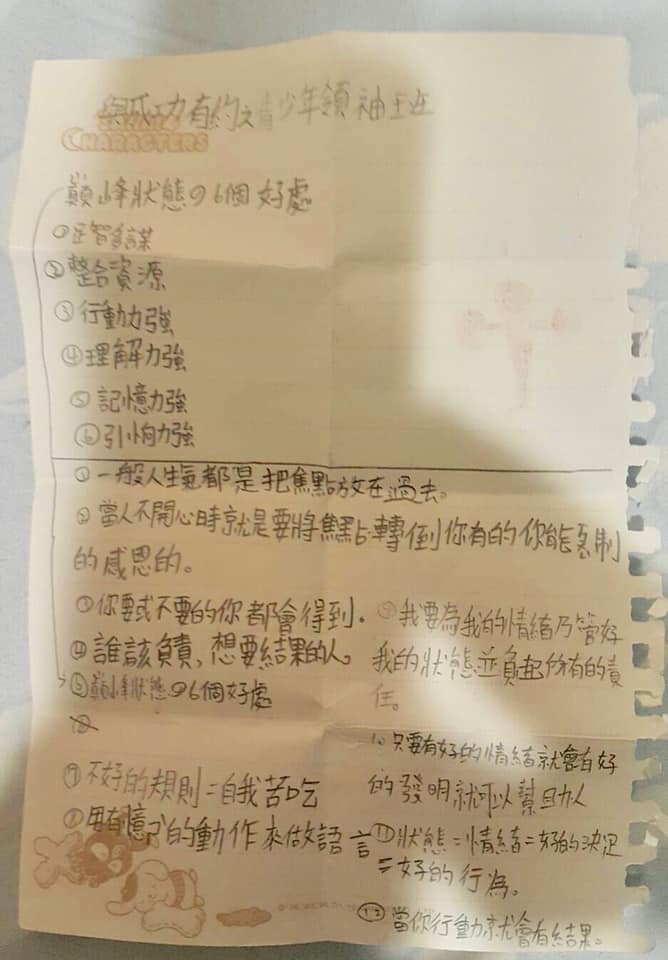 與成功有約之青少年領袖班
CHARACTERS
巔峰狀態の6個好處
①足智多謀
②整合資源
③行動力強
④理解力強
⑤記憶力強
⑥引響力強
①一般人生氣都是把焦點放在過去。
②當人不開心時就是要將焦點轉倒你有的你能 制
的感恩的。
③你要或不要的你都會得到.
④誰該負責,想要結果的人。
⑤巔峰狀態の6個好處
⑦不好的規則=自我苦吃
⑧用有 的動作來做語言
⑨我要為我的情緒乃管好
我的狀態並負起所有的責
任。
10.只要有好的情緒就會有好
的發明就可以幫且力人
⑪狀態=情緒=好的決定
=好的行為。
⑫當你行動就會有結果。